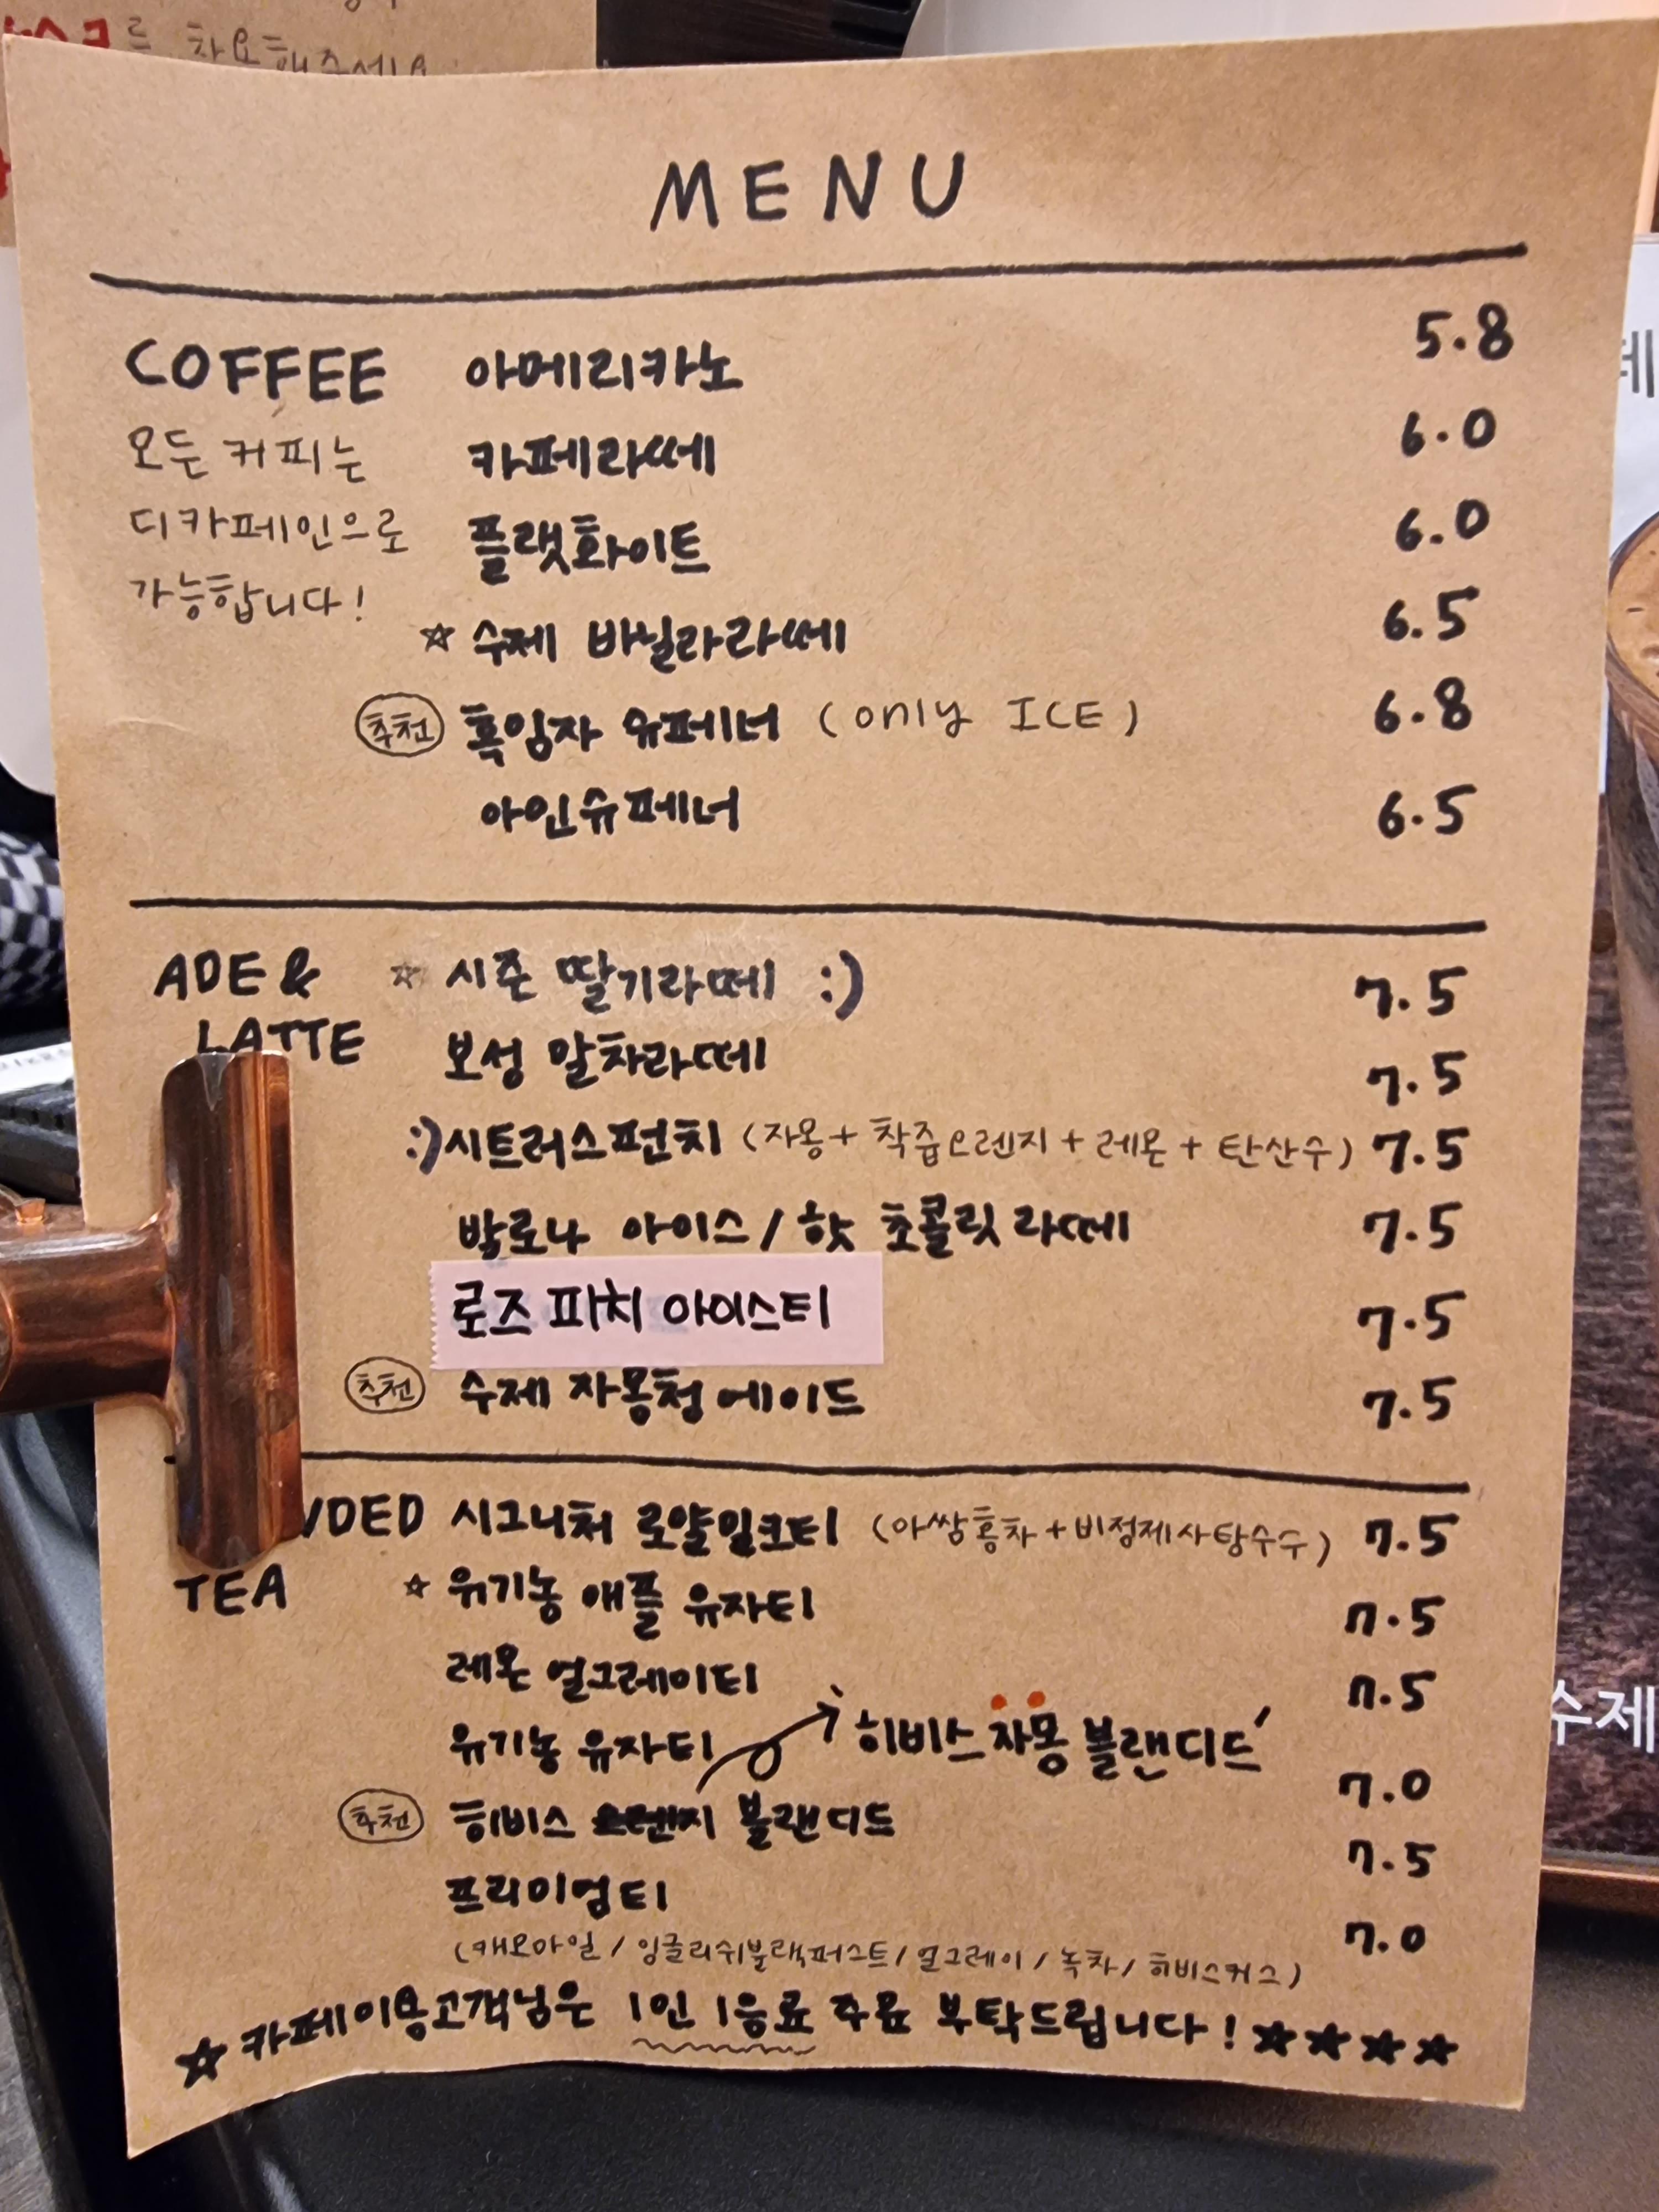 를 착요해주세요
MENU
COFFEE 아메리카노 5.8
모든 커피는 카페라떼 6.0
디카페인으로 플랫화이트 6.0
가능합니다!
☆ 수제 바닐라라떼 6.5
추천 흑임자 슈페너 (only ICE) 6.8
아인슈페너 6.5
ADE & ☆ 시즌 딸기라떼 :) 7.5
LATTE 보성 말차라떼 7.5
:) 시트러스펀치 (자몽+착즙오렌지+레몬+탄산수) 7.5
발로나 아이스/핫 초콜릿 라떼 7.5
로즈 피치 아이스티 7.5
추천 수제 자몽청에이드 7.5
NDED 시그니처 로얄밀크티 (아쌈홍차+비정제사탕수수) 7.5
TEA ☆ 유기농 애플 유자티 7.5
레몬 얼그레이티 7.5
유기농 유자티 7.0
히비스 자몽 블랜디드
추천 히비스 오렌지 블랜디드 7.5
프리미엄티 7.0
(캐모마일/잉글리쉬블랙퍼스트/얼그레이/녹차/히비스커스)
☆ 카페이용고객님은 1인 1음료 주문 부탁드립니다! ☆☆☆☆
수제